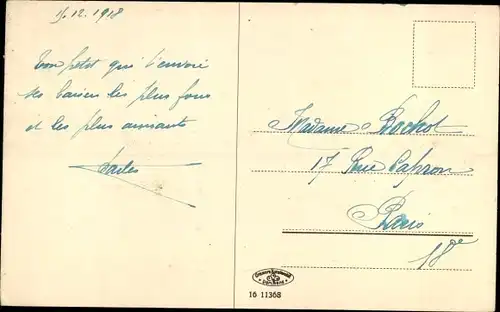 15.12.1918
Ton petit qui t'envoie
ses baisers les plus fous
et les plus aimants
Madame Rochot
17 Rue Capron
Paris
18e
16 11368